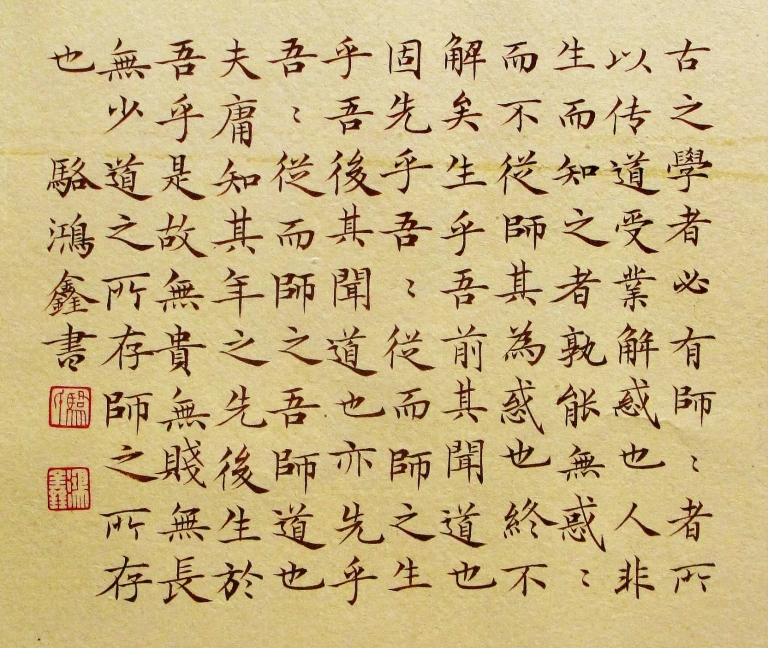 古之學者必有師〻者所
以传道受業解惑也人非
生而知之者孰能無惑〻
而不從師其為惑也終不
解矣生乎吾前其聞道也
固先乎吾〻從而師之生
乎吾後其聞道也亦先乎
吾〻從而師之吾師道也
夫庸知其年之先後生於
吾乎是故無貴無賤無長
無少道之所存師之所存
也 駱鴻鑫書
駱
鴻鑫